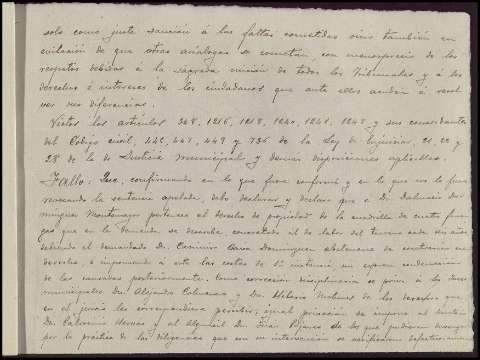 solo como justa sanción á las faltas cometidas sino también en
evitación de que otras análogas se cometan, con menosprecio de los
respetos debidos á la sagrada misión de todos los Tribunales y á los
derechos é intereses de los ciudadanos que ante ellos acuden á resol
ver sus diferencias.
Vistos los artículos 348, 1216, 1218, 1240, 1241, 1248 y sus concordantes
del Código civil, 446, 447, 449 y 736 de la Ley de Enjuiciar, 21, 22 y
28 de la de Justicia municipal y demas disposiciones aplicables.
Fallo: Que, confirmando en lo que fuere conforme y en lo que no lo fuere
revocando la sentencia apelada, debo declarar y declaro que á D. Dalmacio Do-
minguez Montenegro pertenece el derecho de propiedad de la cuadrilla de cuatro fane-
gas que en la demanda se describe, conservando el de labor del terreno cada seis años
debiendo el demandado D. Casimiro Dominguez abstenerse de
derecho, é imponiendo á este las costas de 1ª instancia sin expresa condenación
de las causadas posteriormente. Como corrección disciplinaria se priva á los Jueces
municipales Dn. Alejandro y Dn. Hilario de los derechos que,
en el juicio les correspondiera percibir; igual privación se impone al
Dn. y al Alguacil Dn. de los que pudieran
por la práctica de las diligencias que con su intervención se verificaron